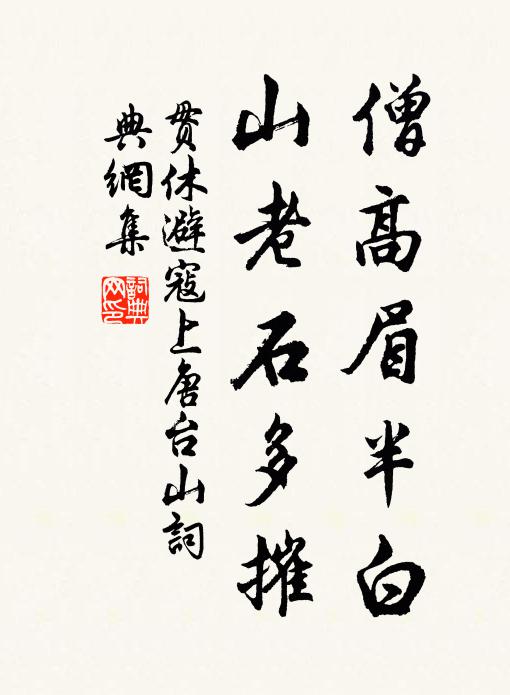 僧高眉半白
山老石多摧
貫休避寇上唐台山詞
典網集
詞典
网印